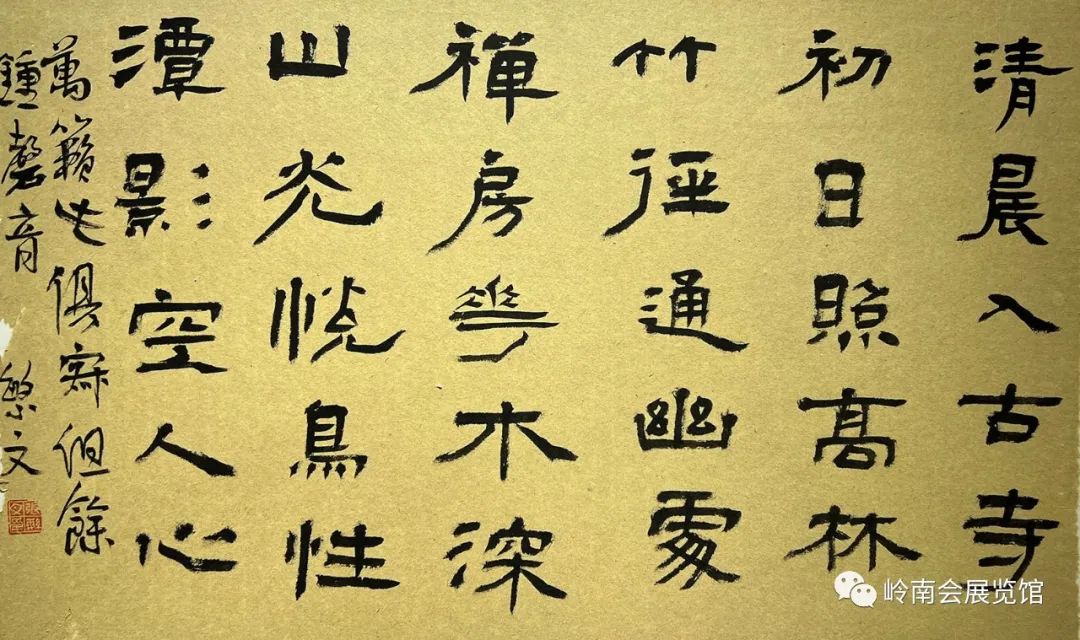 清晨入古寺
初日照高林
竹徑通幽處
禪房花木深
山光悦鳥性
潭影空人心
萬籟此俱寂但餘
鍾磬音 繁文
岭南会展览馆